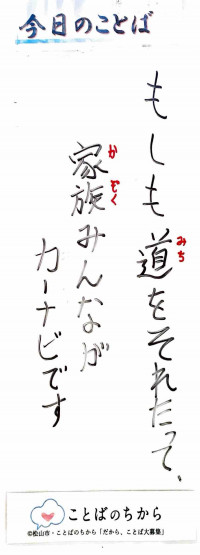 今日のことば
もしも道をそれたって、
みち
家族みんなが
かぞく
カーナビです
ことばのちから
©松山市・ことばのちから「だから、ことば大募集」